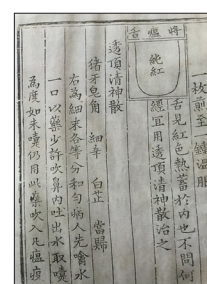 枚煎至一鍾溫服
將瘟舌
純紅
舌見紅色熱蓄於内也不問何
經宜用透頂清神散治之
透頂清神散
猪牙皂角 細辛 白芷 當歸
右為細末各等分和勻病人先噙水
一口以藥少許吹鼻内吐出水取嚏
為度如未嚏仍用此藥吹入凡瘟疫